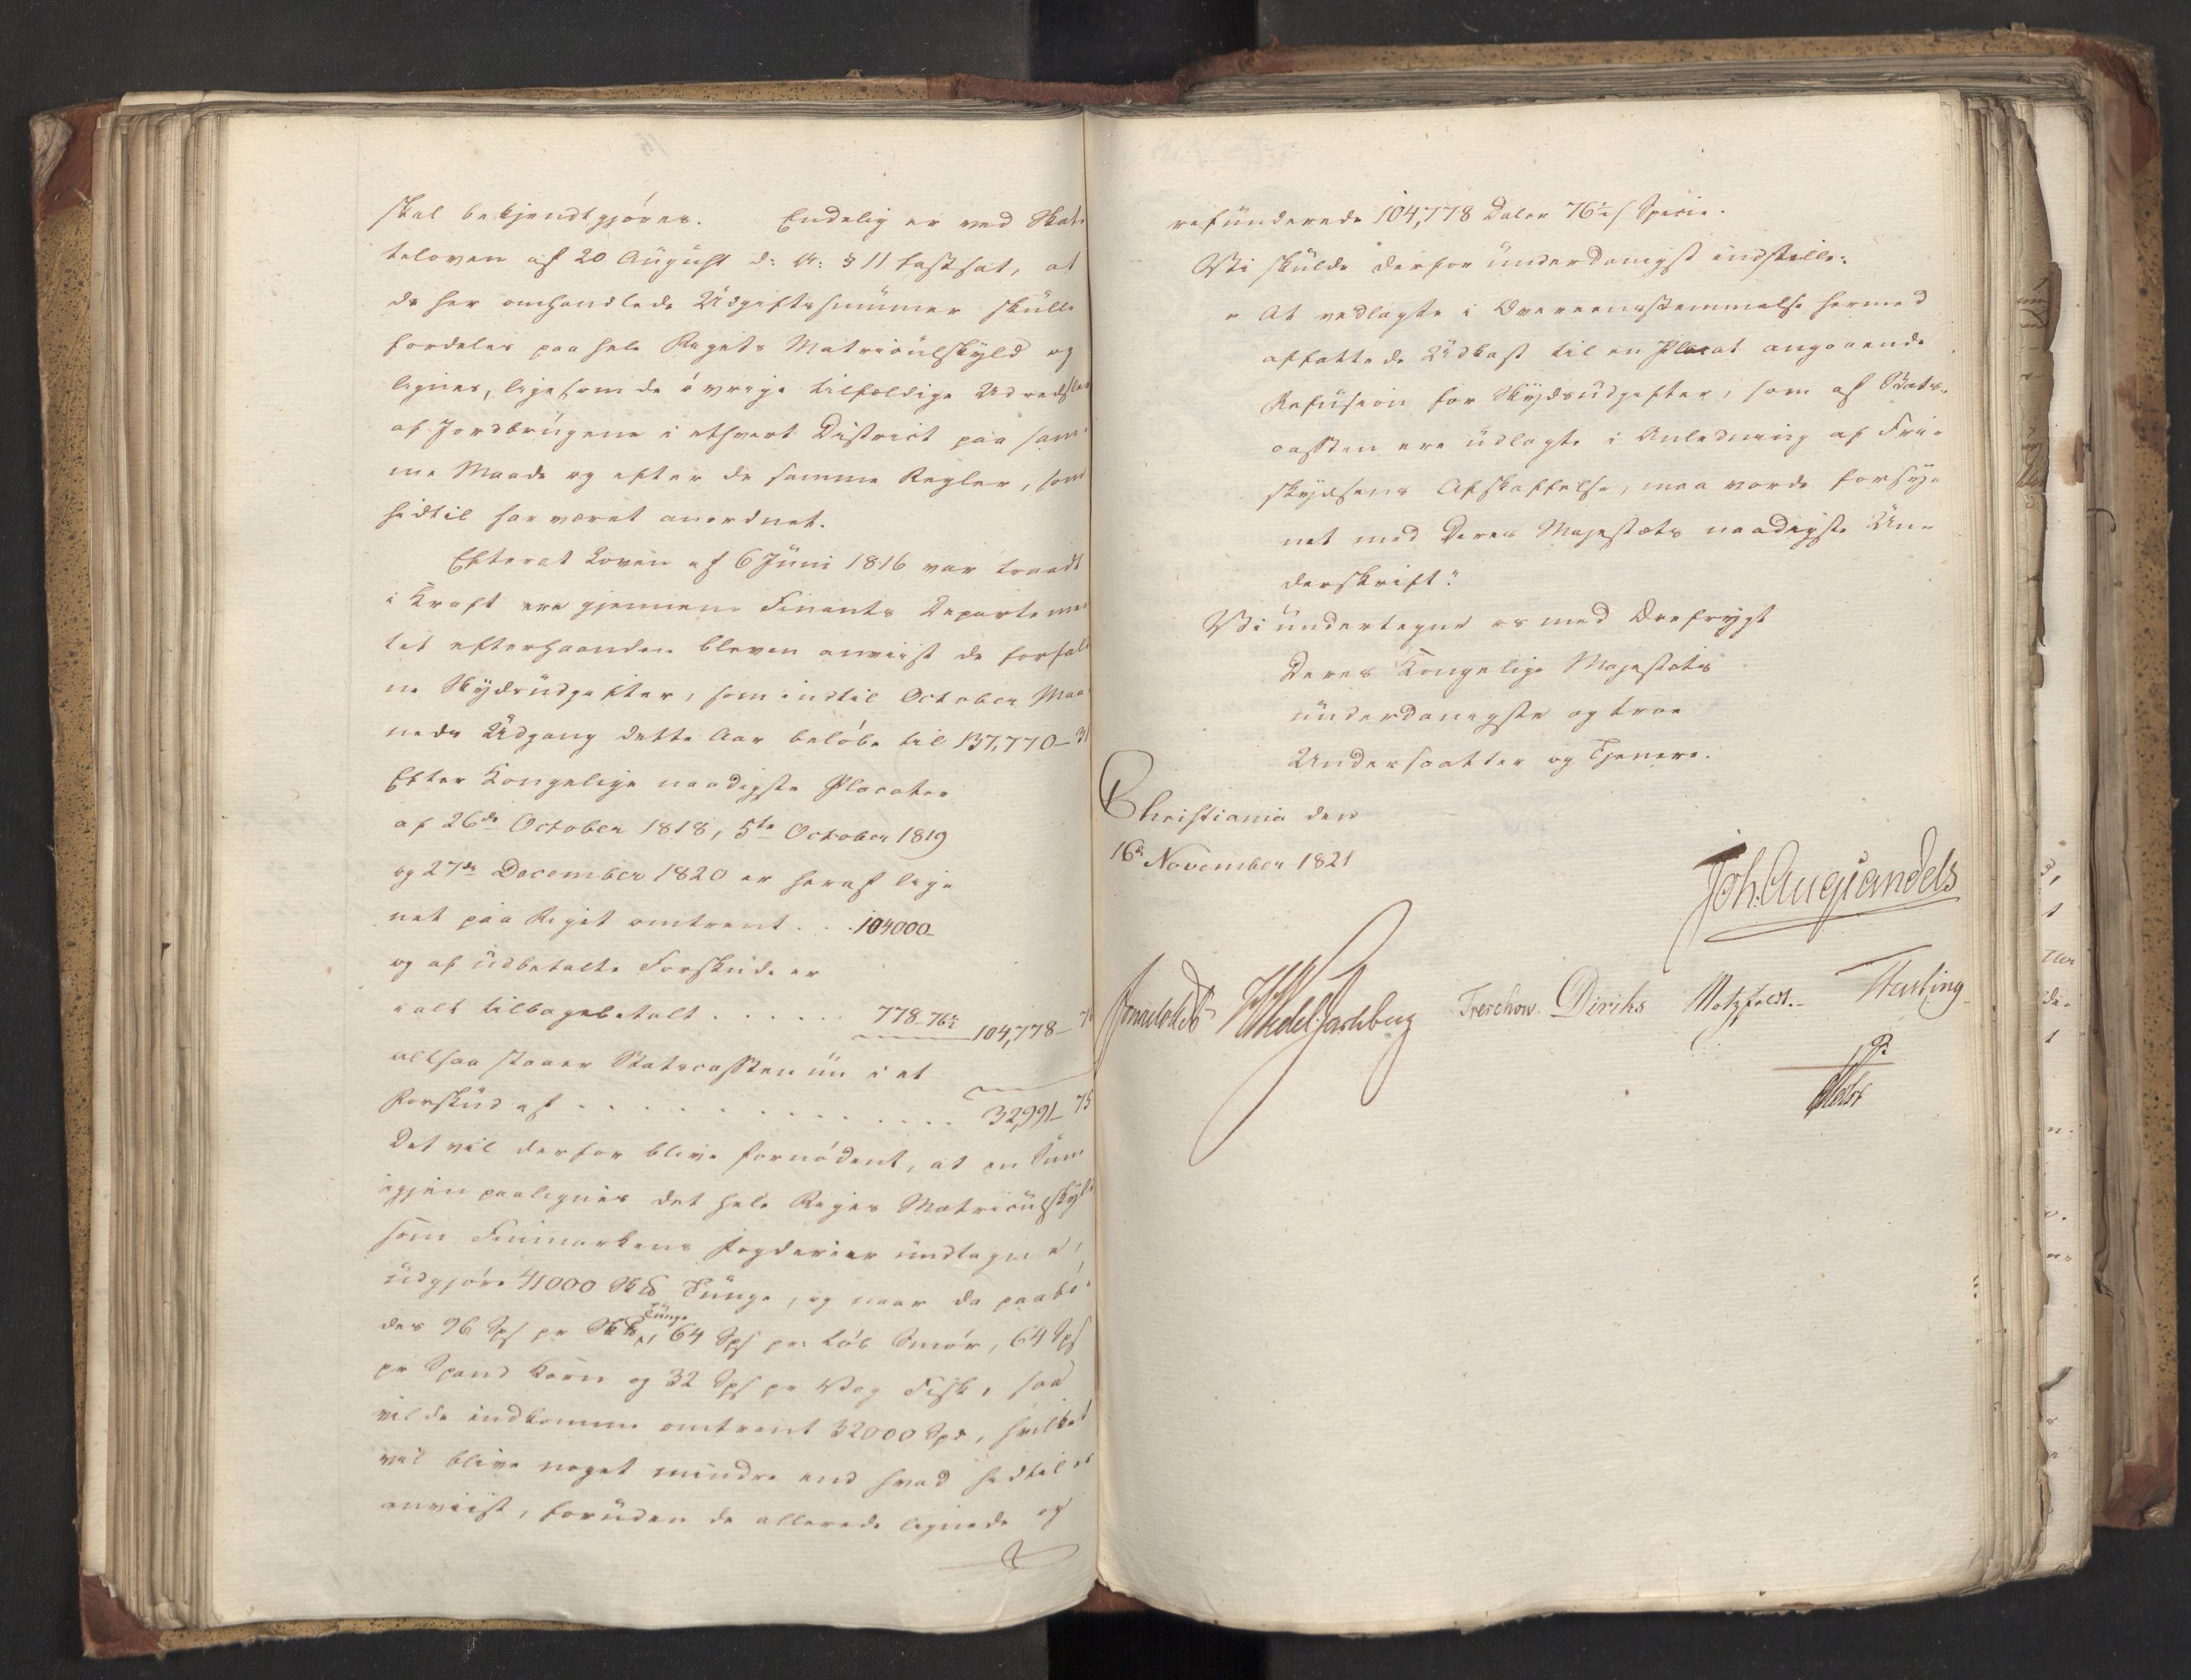 skal bekjendtgjöres. Endelig er ved Skat-
teloven af 20 August d: A: § 11 fastsat, at
de her omhandlede Udgiftssummer skulle
fordeles paa hele Rigets Matriculskyld og
lignes, ligesom de övrige tilfældige Udredsler
af Jordbrugene i ethvert District paa sam-
me Maade og efter de samme Regler, som
hidtil har været anordnet.
Efterat Loven af 6 Juni 1816 var traadt
i Kraft ere gjennem Finants Departemen
tet efterhaanden bleven anviist de forfald
ne Skydsudgifter, som indtil October Maa
neds Udgang dette Aar beløbe til 137,770–31
Efter Kongelige naadigste Placater
af 26de October 1818, 5te October 1819
og 27de December 1820 er heraf lig-
net paa Riget omtrent . . . 104000–
og af udbetalte Forskud er
ialt tilbagebetalt . . . . . 778–76½ 104,778–
altsaa staaer Statscassen nu i et
Forskud af . . . . . . . . . . . 32,991–75
Det vil derfor blive fornödent, at en Sum
igjen paalignes det hele Riges Matriculskyld
som Finmarkens Fogderier undtagne,
udgjöre 41000 Sk℔ Tunge, og naar da paabö-
des 96 Sps pr Sk℔ Tunge, 64 Sps pr: Löb Smör, 64 Sps
pr Spand Korn og 32 Sps pr Vog Fisk, saa
vilde indkomme omtrent 32000 Spd, hvilket
vil blive noget mindre end hvad hidtil er
anviist, foruden de allerede lignede og
refunderede 104,778 Daler 76½ s Specie.
Vi skulde derfor underdanigst indstille:
" At vedlagte i Overeensstemmelse hermed
affattede Udkast til en Placat angaaende
Refusion for Skydsudgifter, som af Stats-
cassen ere udlagte i Anledning af Fri-
skydsens Afskaffelse, maa vorde forsy-
net med Deres Majestæts naadigste Un-
derskrift."
Vi undertegne os med Ærefrygt
Deres Kongelige Majestæts
underdanigste og troe
Undersaatter og Tjenere.
Christiania den
16de November 1821
Joh. Aug Sandels
Sommerhielm Wedel Jarlsberg Treschow. Diriks Motzfeldt. Fasting